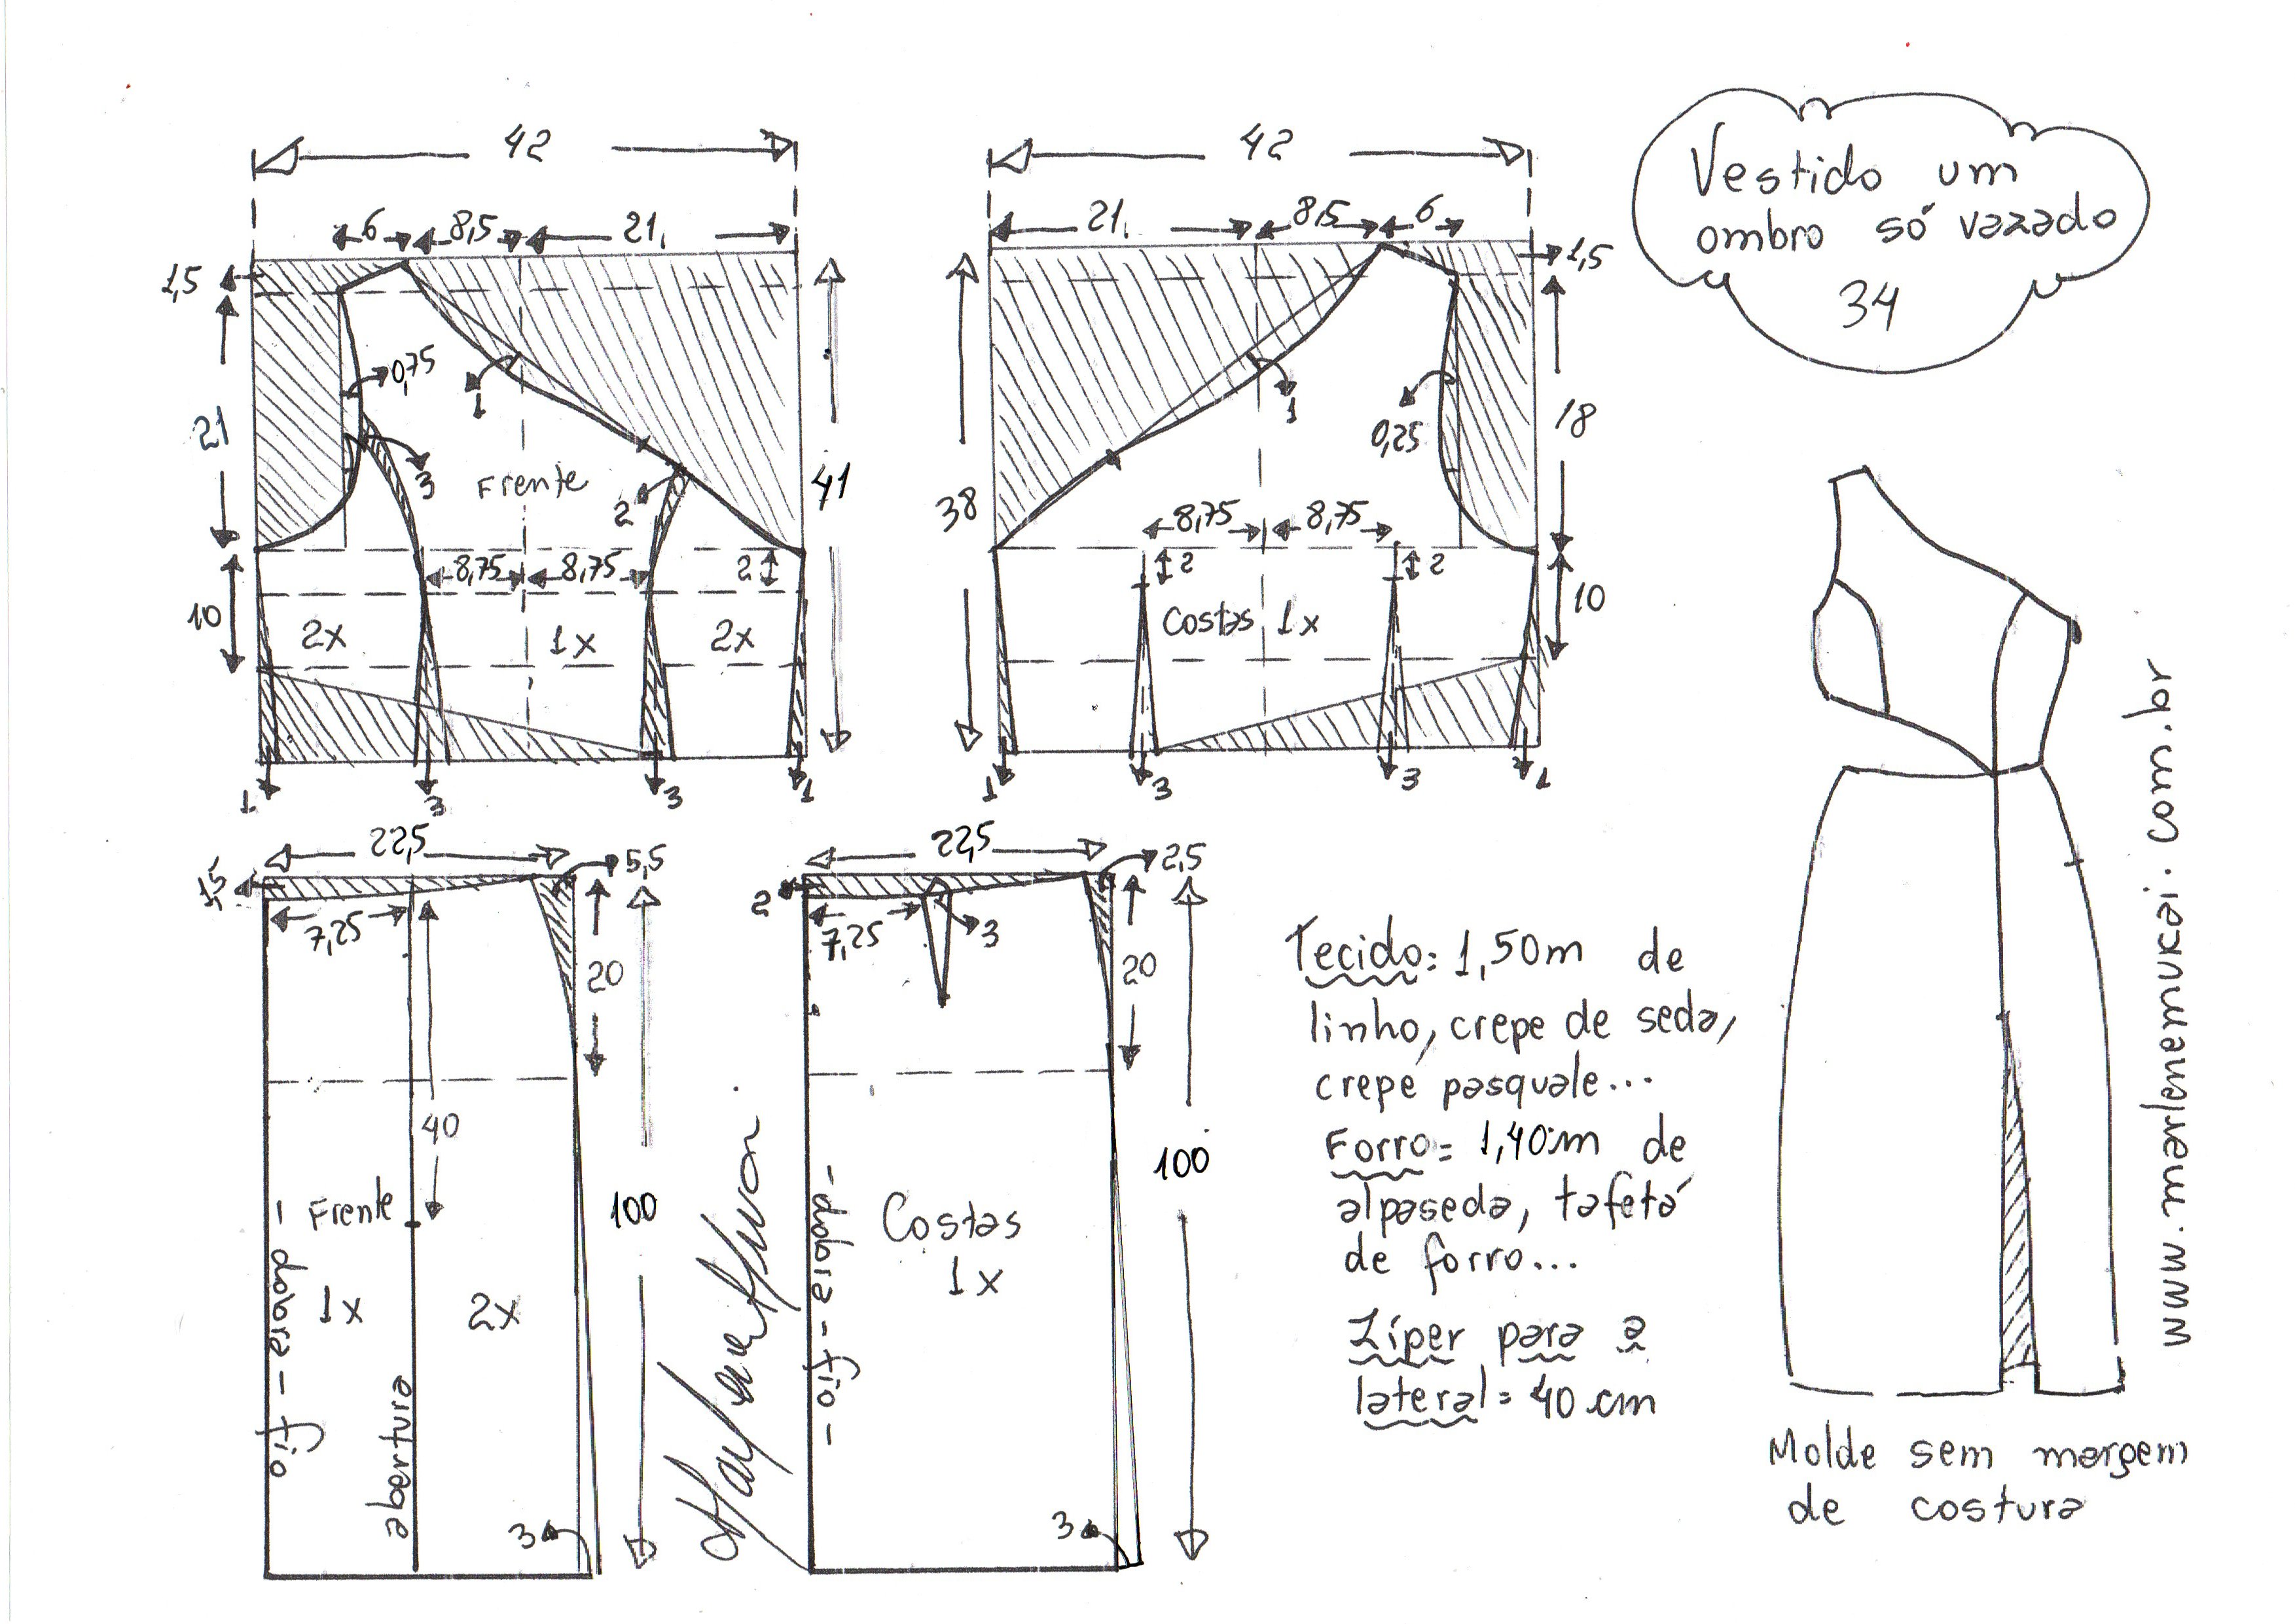 42
42
Vestido um
ombro só vazado
34
6 8,5 21.
21. 8,5 6
1,5
1,5
0,75
1
1
21
3
Frente
2
41
38
0,25
18
8,75 8,75
8,75 8,75
2
2
2
10
10
2x
1x
2x
Costas 1x
1
3
3
1
1
3
3
1
22,5
22,5
5,5
2,5
1,5
2
7,25
7,25
3
20
20
40
100
100
Frente
1x
2x
- dobra - fio
abertura
3
- dobra - fio -
Costas
1x
3
Tecido: 1,50m de
linho, crepe de seda,
crepe pasquale...
Forro= 1,40m de
alpaseda, tafetá
de forro...
Zíper para a
lateral= 40 cm
www.marlenemukai.com.br
Molde sem margem
de costura